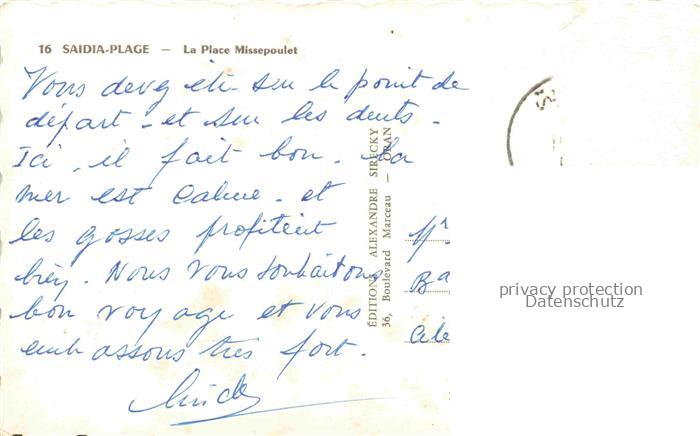 16 SAIDIA-PLAGE — La Place Missepoulet
Vous devez être sur le point de
départ - et sur les dents.
Ici, il fait bon. La
mer est calme - et
les gosses profitent
bien. Nous vous souhaitons
bon voyage et vous
embrassons très fort.
ÉDITIONS ALEXANDRE SIRECKY
36, Boulevard Marceau — ORAN
Mr
Ba
privacy protection
Datenschutz